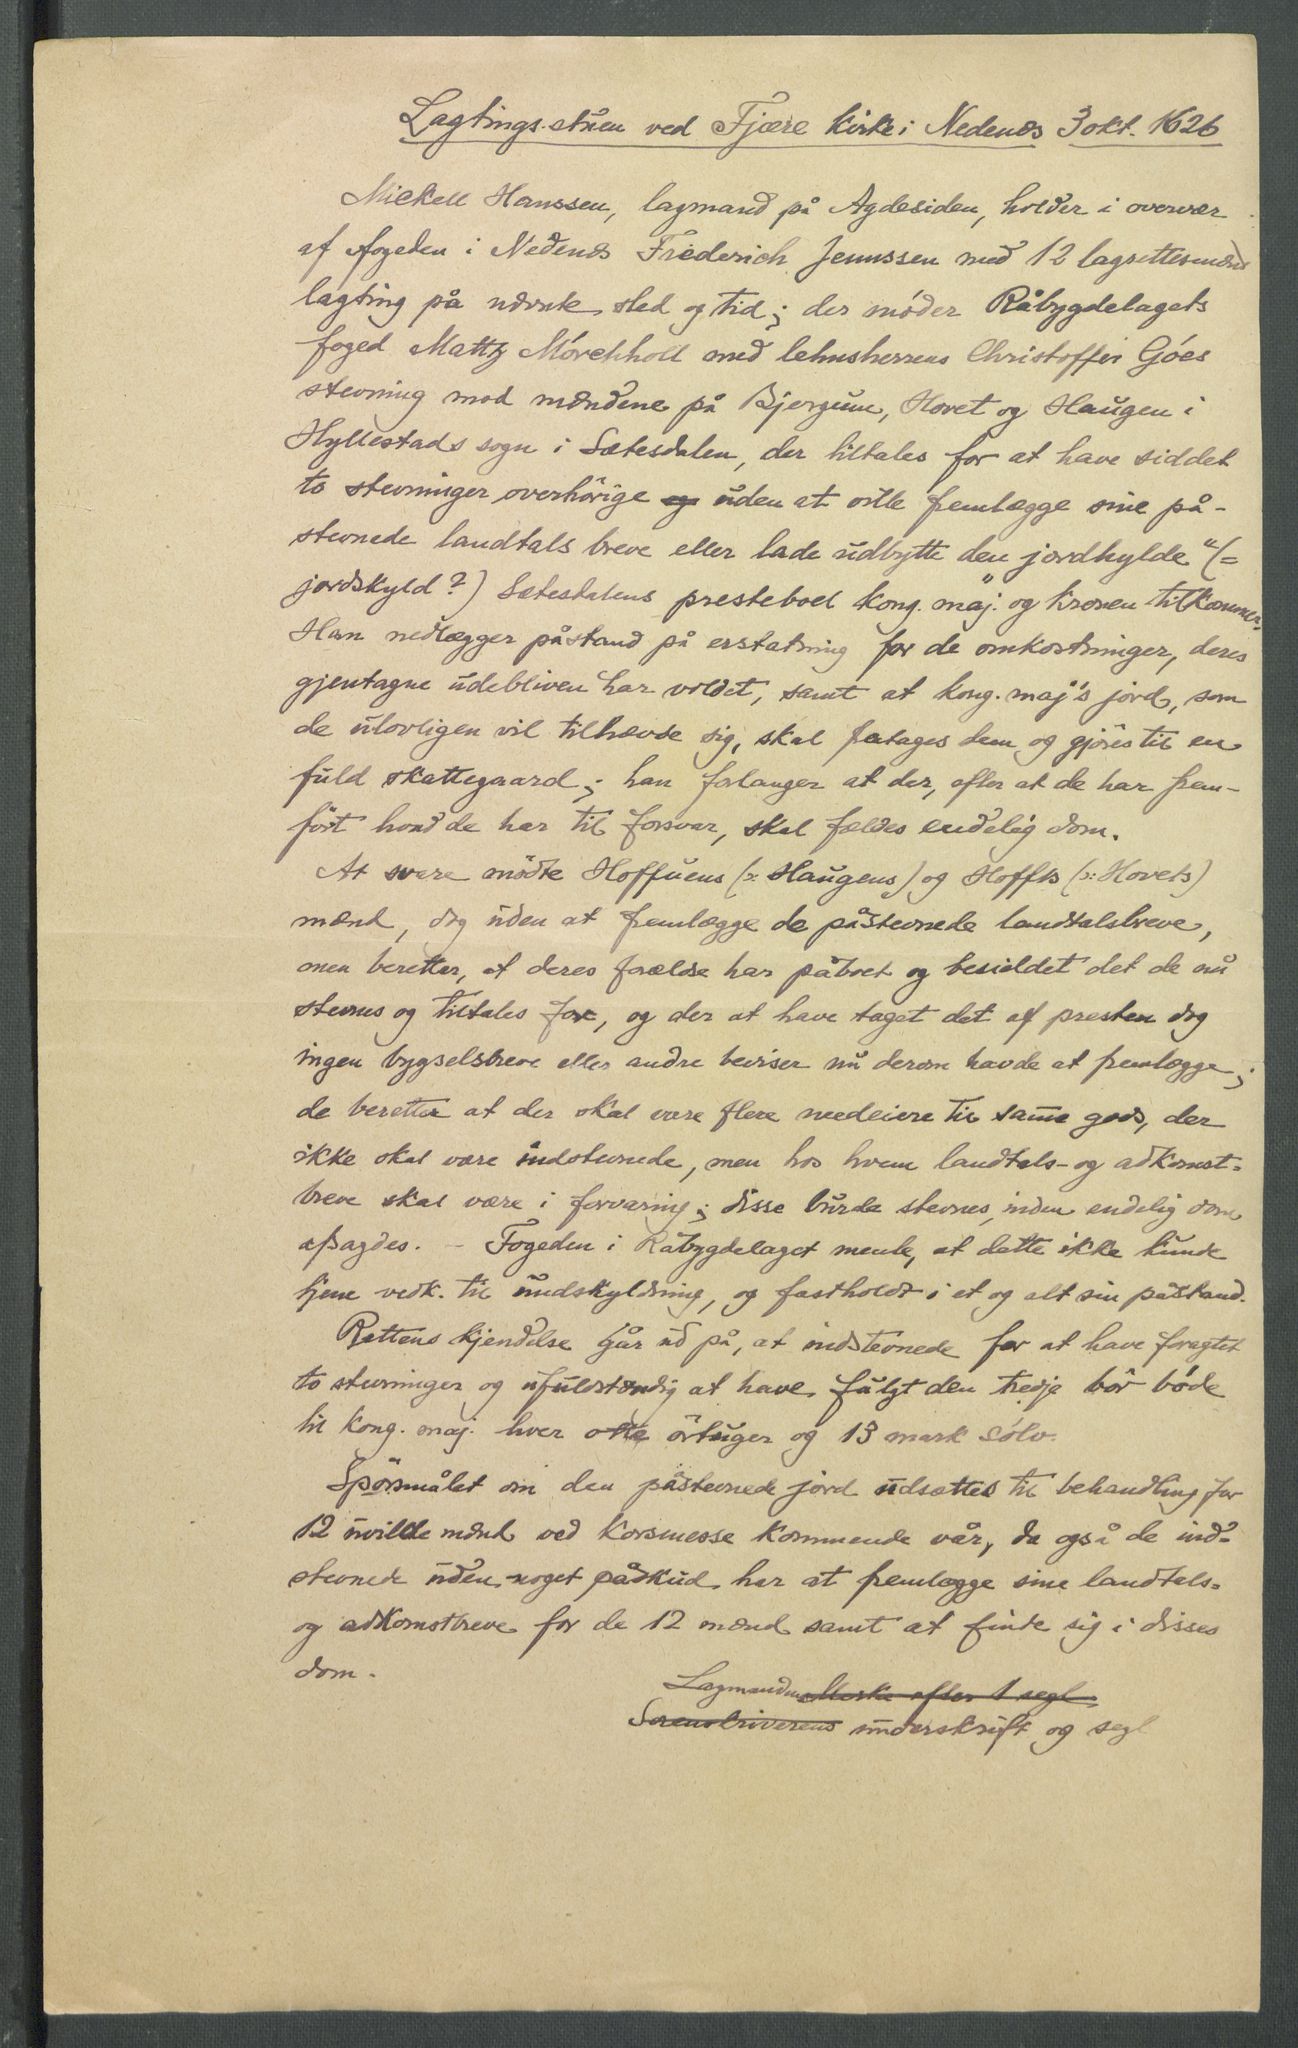 Lagtings stuen ved Fjære kirke i Nedenes 3 okt. 1626
Mickell Hanssen, lagmand på Agdesiden, holder i overvær
af fogeden i Nedenes Frederich Jenussen med 12 lagrettesmænd
lagting på nævnte sted og tid; der möder Råbygdelagets
foged Mattz Mörchholl med lehnsherrens Christoffer Göes
stevning mod mændene på Bjørgum, Hovet og Haugen i
Hyllestads sogn i Sætesdalen, der tiltales for at have siddet
to stevninger overhörige og uden at ville fremlægge sine på-
stevnede landtals breve eller lade udbytte den jordhylde" (=
jordskyld?) Sætesdalens presteboel kong. maj. og kronen tilkommer.
Han nedlægger påstand på erstatning for de omkostninger, deres
gjentagne udebliven har voldet, samt at kong. maj's jord, som
de ulovligen vil tilhævde sig, skal fratages dem og gjöres til en
fuld skattegaard; han forlanger at der, efter at de har frem-
fört hvad de har til forsvar, skal fældes endelig dom.
At svare mödte Hoffuens (ɔ: Haugens) og Hoffts (ɔ: Hovets)
mænd, dog uden at fremlægge de påstevnede landtalsbreve,
men beretter, at deres forældre har påboet og besiddet det de nu
stevnes og tiltales for, og der at have taget det af presten dog
ingen bygselsbreve eller andre beviser nu derom havde at fremlægge;
de beretter at der skal være flere medeiere til samme gods, der
ikke skal være indstevnede, men hos hvem landtals- og adkomst-
breve skal være i forvaring; disse burde stevnes, inden endelig dom
afsagdes. – Fogeden i Råbygdelaget mente, at dette ikke kunde
tjene vedk. til undskyldning, og fastholdt i et og alt sin påstand.
Rettens kjendelse går ud på, at indstevnede for at have foragtet
to stevninger og ufuldstændig at have fulgt den tredje bör böde
til kong. maj. hver otte örtuger og 13 mark sölv.
Spörsmålet om den påstevnede jord udsættes til behandling for
12 uvilde mænd ved korsmesse kommende vår, da også de ind-
stevnede uden noget påskud har at fremlægge sine landtals-
og adkomstbreve for de 12 mænd samt at finde sig i disses
dom.
Lagmandens Merke efter 1 segl.
Sorenskriverens underskrift og segl